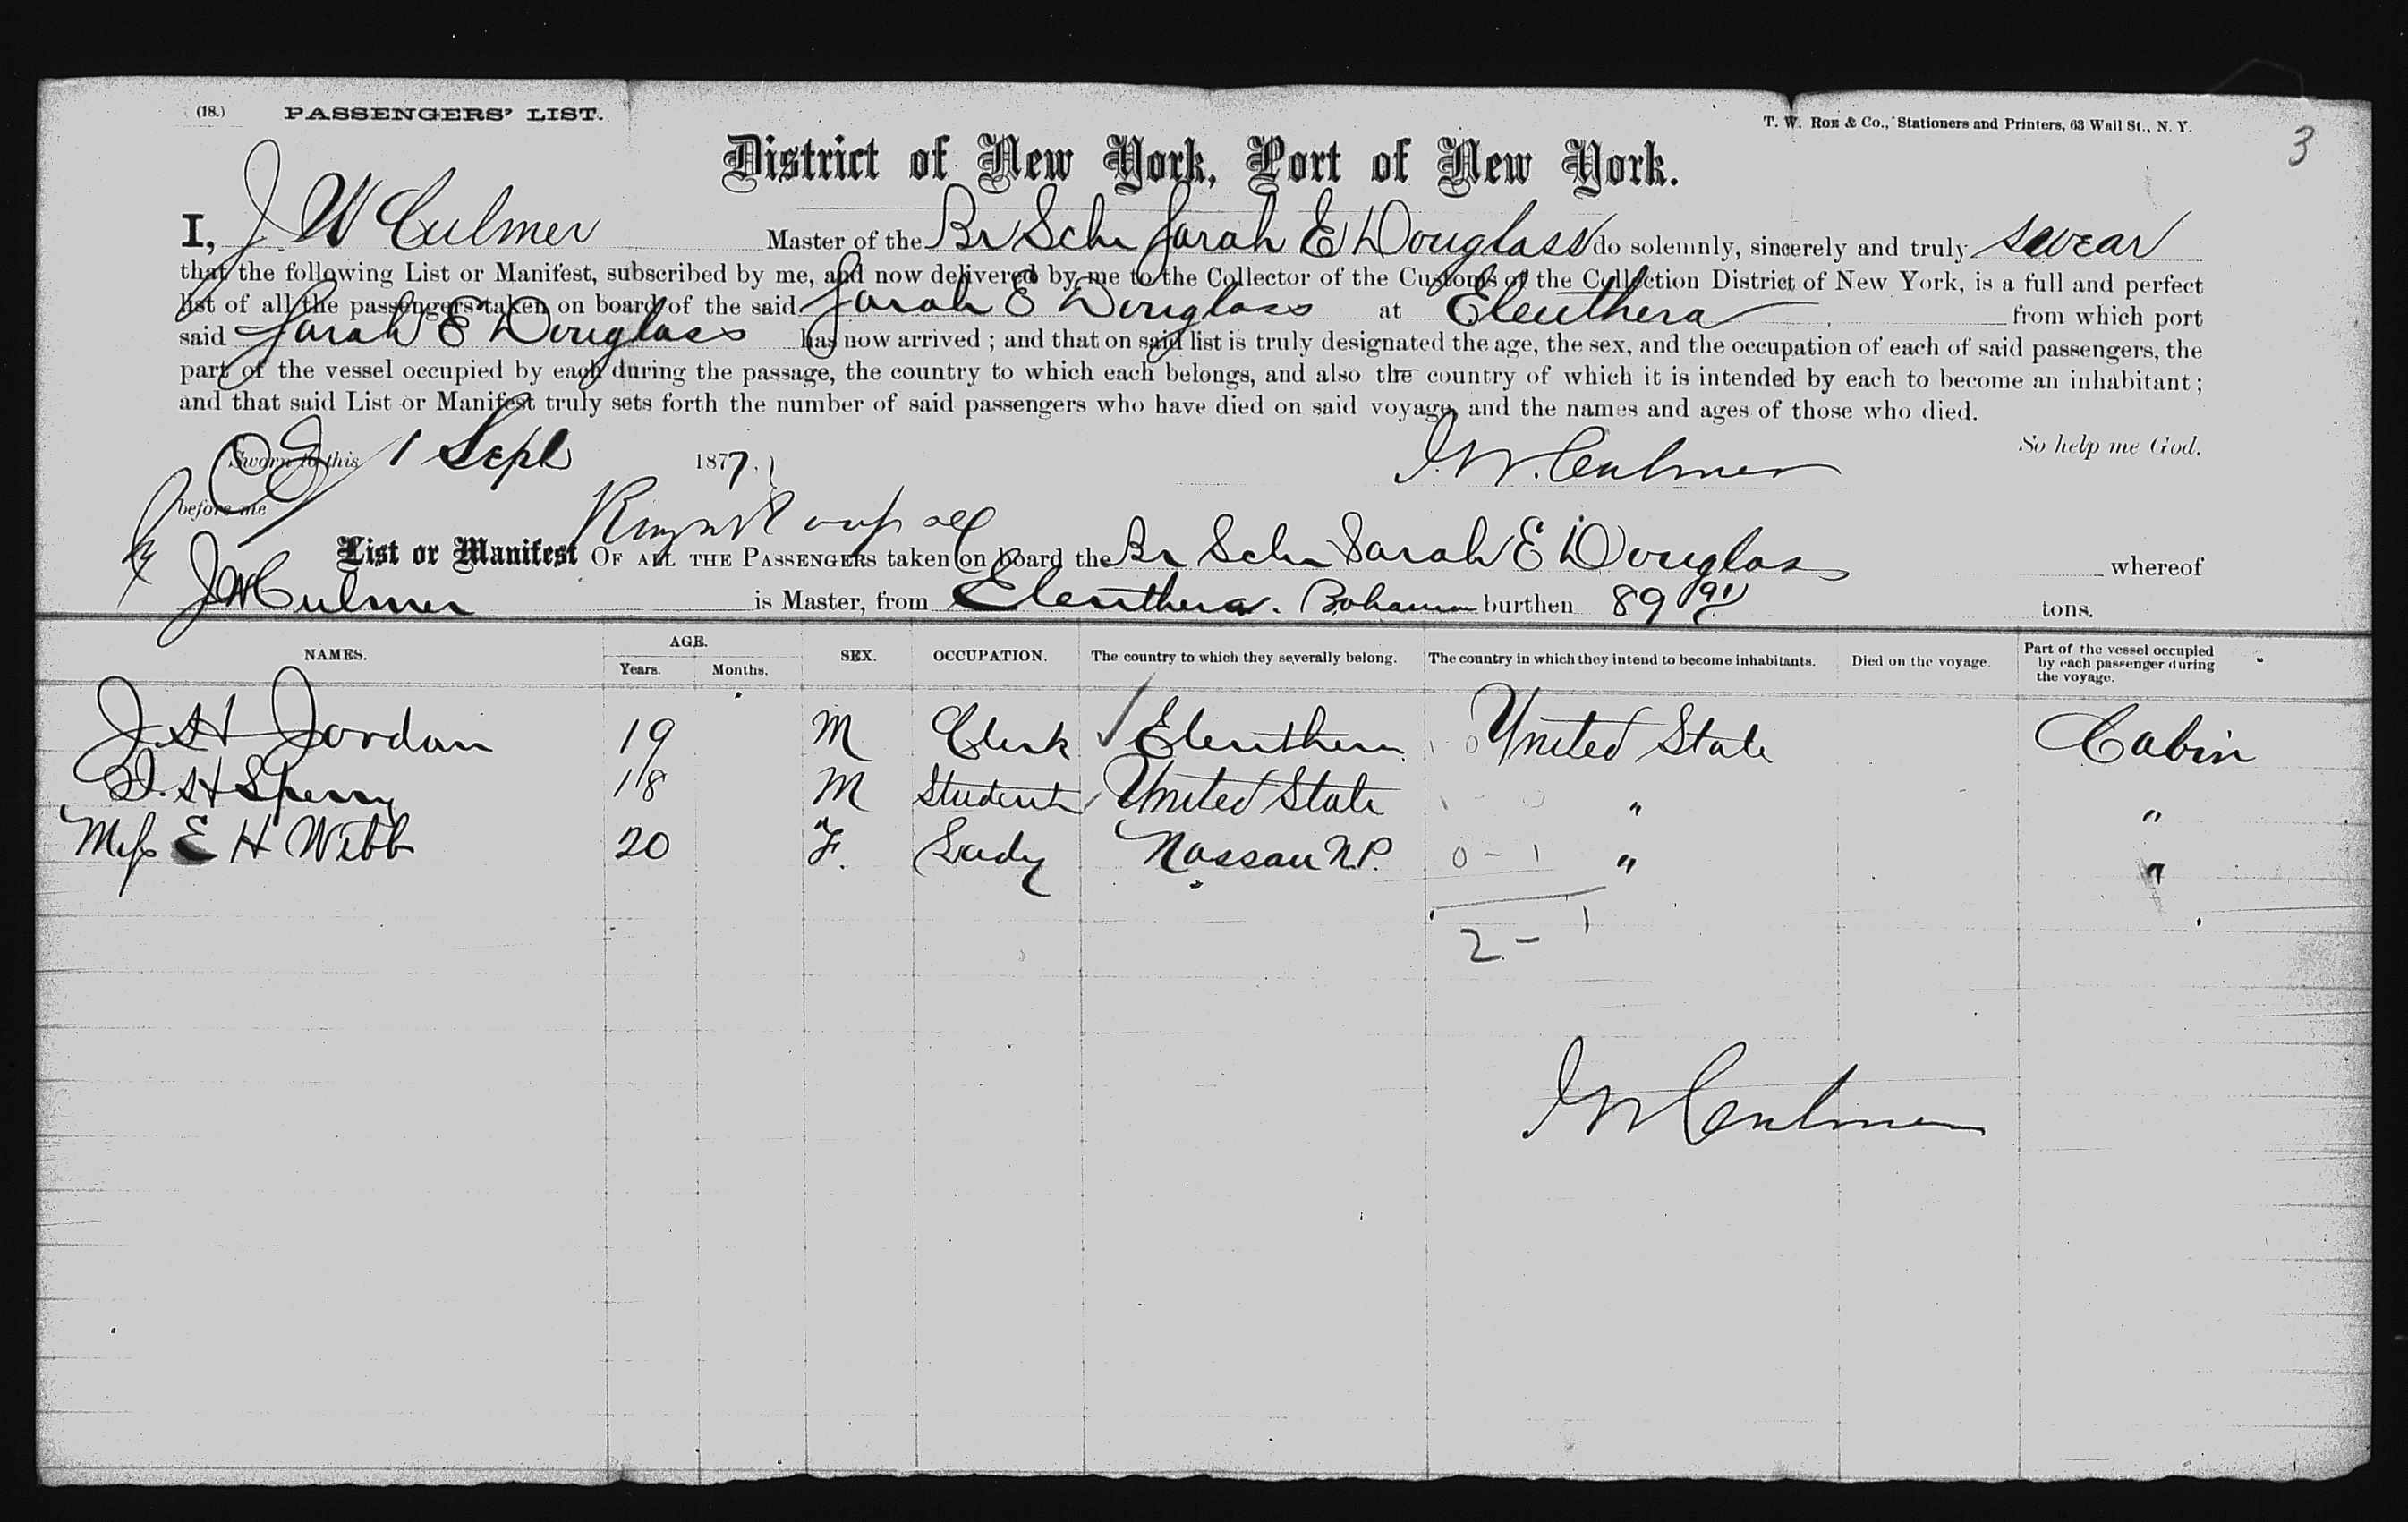 (18.) PASSENGERS' LIST.
T. W. ROE & Co., Stationers and Printers, 63 Wall St., N. Y.
3
District of New York, Port of New York.
I, J W Culmer Master of the Br Schr Sarah E Douglass do solemnly, sincerely and truly swear
that the following List or Manifest, subscribed by me, and now delivered by me to the Collector of the Customs of the Collection District of New York, is a full and perfect
list of all the passengers taken on board of the said Sarah E Douglass at Eleuthera from which port
said Sarah E Douglass has now arrived ; and that on said list is truly designated the age, the sex, and the occupation of each of said passengers, the
part of the vessel occupied by each during the passage, the country to which each belongs, and also the country of which it is intended by each to become an inhabitant ;
and that said List or Manifest truly sets forth the number of said passengers who have died on said voyage, and the names and ages of those who died.
So help me God.
Sworn to this 1 Sept 1877.
J. W. Culmer
before me
List or Manifest OF ALL THE PASSENGERS taken on board the Br Schr Sarah E Douglas whereof
J W Culmer is Master, from Eleuthera. Bahama burthen 89 tons.
NAMES. AGE. Years. Months. SEX. OCCUPATION. The country to which they severally belong. The country in which they intend to become inhabitants. Died on the voyage. Part of the vessel occupied by each passenger during the voyage.
J. H Jordan 19 M Clerk Eleuthera United State Cabin
H Sperry 18 M Student United State " "
Miss E H Webb 20 F. Lady Nassau N.P. 0 - 1 " "
2 - 1
J W Culmer